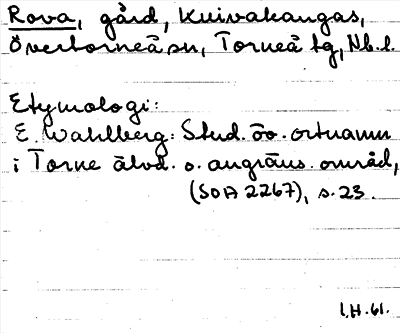 Rova, gård, Kuivakangas,
Övertorneå sn, Torneå tg, Nb. l.
Etymologi:
E. Wahlberg: Stud. öv. ortnamn
i Torne älvd. o. angräns. område,
(SOA 2267), s. 23.
I.H. 61.